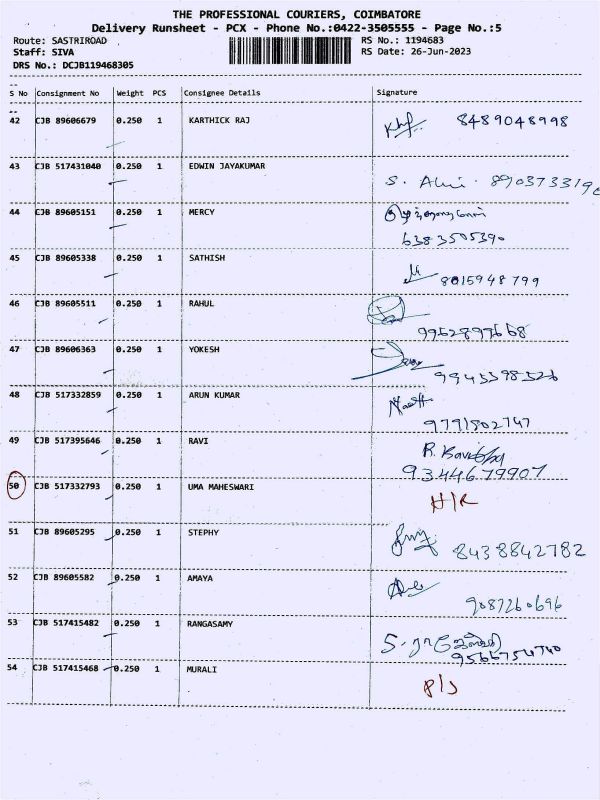 THE PROFESSIONAL COURIERS, COIMBATORE
Delivery Runsheet - PCX - Phone No.:0422-3505555 - Page No.:5
Route: SASTRIROAD RS No.: 1194683
Staff: SIVA RS Date: 26-Jun-2023
DRS No.: DCJB119468305
S No Consignment No Weight PCS Consignee Details Signature
42 CJB 89606679 0.250 1 KARTHICK RAJ 8489048998
43 CJB 517431040 0.250 1 EDWIN JAYAKUMAR
S. 890373319
44 CJB 89605151 0.250 1 MERCY
6383505390
45 CJB 89605338 0.250 1 SATHISH
8015948799
46 CJB 89605511 0.250 1 RAHUL
47 CJB 89606363 0.250 1 YOKESH
48 CJB 517332859 0.250 1 ARUN KUMAR
9791802747
49 CJB 517395646 0.250 1 RAVI
9344679907
50 CJB 517332793 0.250 1 UMA MAHESWARI
H/R
51 CJB 89605295 0.250 1 STEPHY
8438842782
52 CJB 89605582 0.250 1 AMAYA
9087260696
53 CJB 517415482 0.250 1 RANGASAMY
9566754740
54 CJB 517415468 0.250 1 MURALI